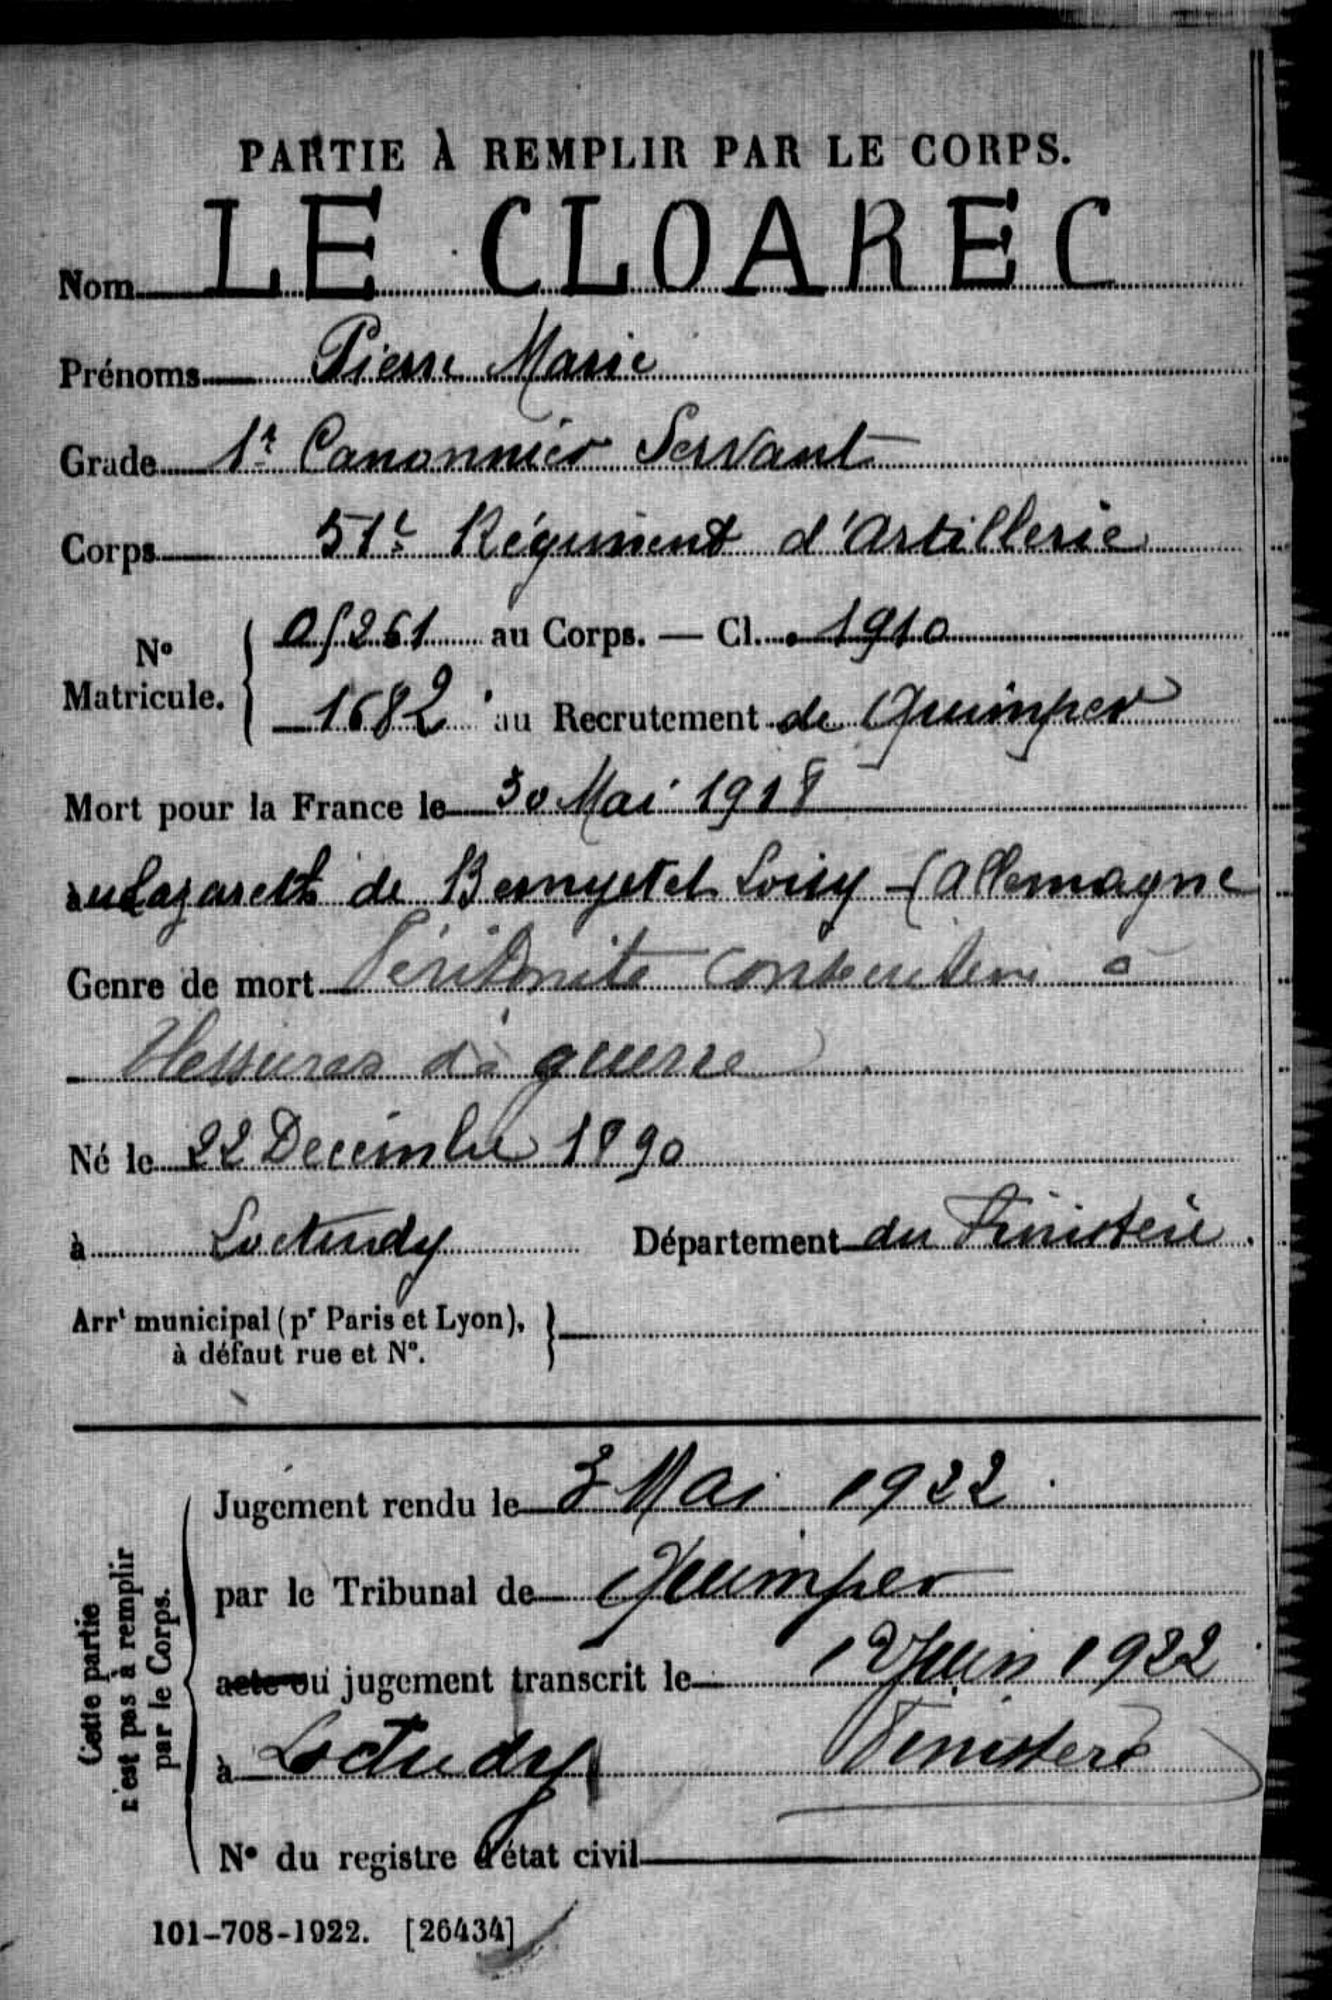 PARTIE À REMPLIR PAR LE CORPS.
Nom LE CLOAREC
Prénoms Pierre Marie
Grade 1r Canonnier Servant
Corps 51e Régiment d'Artillerie
No Matricule. { 0/261 au Corps. — Cl. 1910
1682 au Recrutement de Quimper
Mort pour la France le 30 Mai 1918
au Lazarett de Bernyetel Loisy (Allemagne
Genre de mort Péritonite consécutive à
blessures de guerre
Né le 22 Decembre 1890
à Loctudy Département du Finistère.
Arrt municipal (pr Paris et Lyon),
à défaut rue et No.
Cette partie
n'est pas à remplir
par le Corps.
Jugement rendu le 3 Mai 1922
par le Tribunal de Quimper
acte ou jugement transcrit le 12 Juin 1922
à Loctudy Finistère
No du registre d'état civil
101-708-1922. [26434]